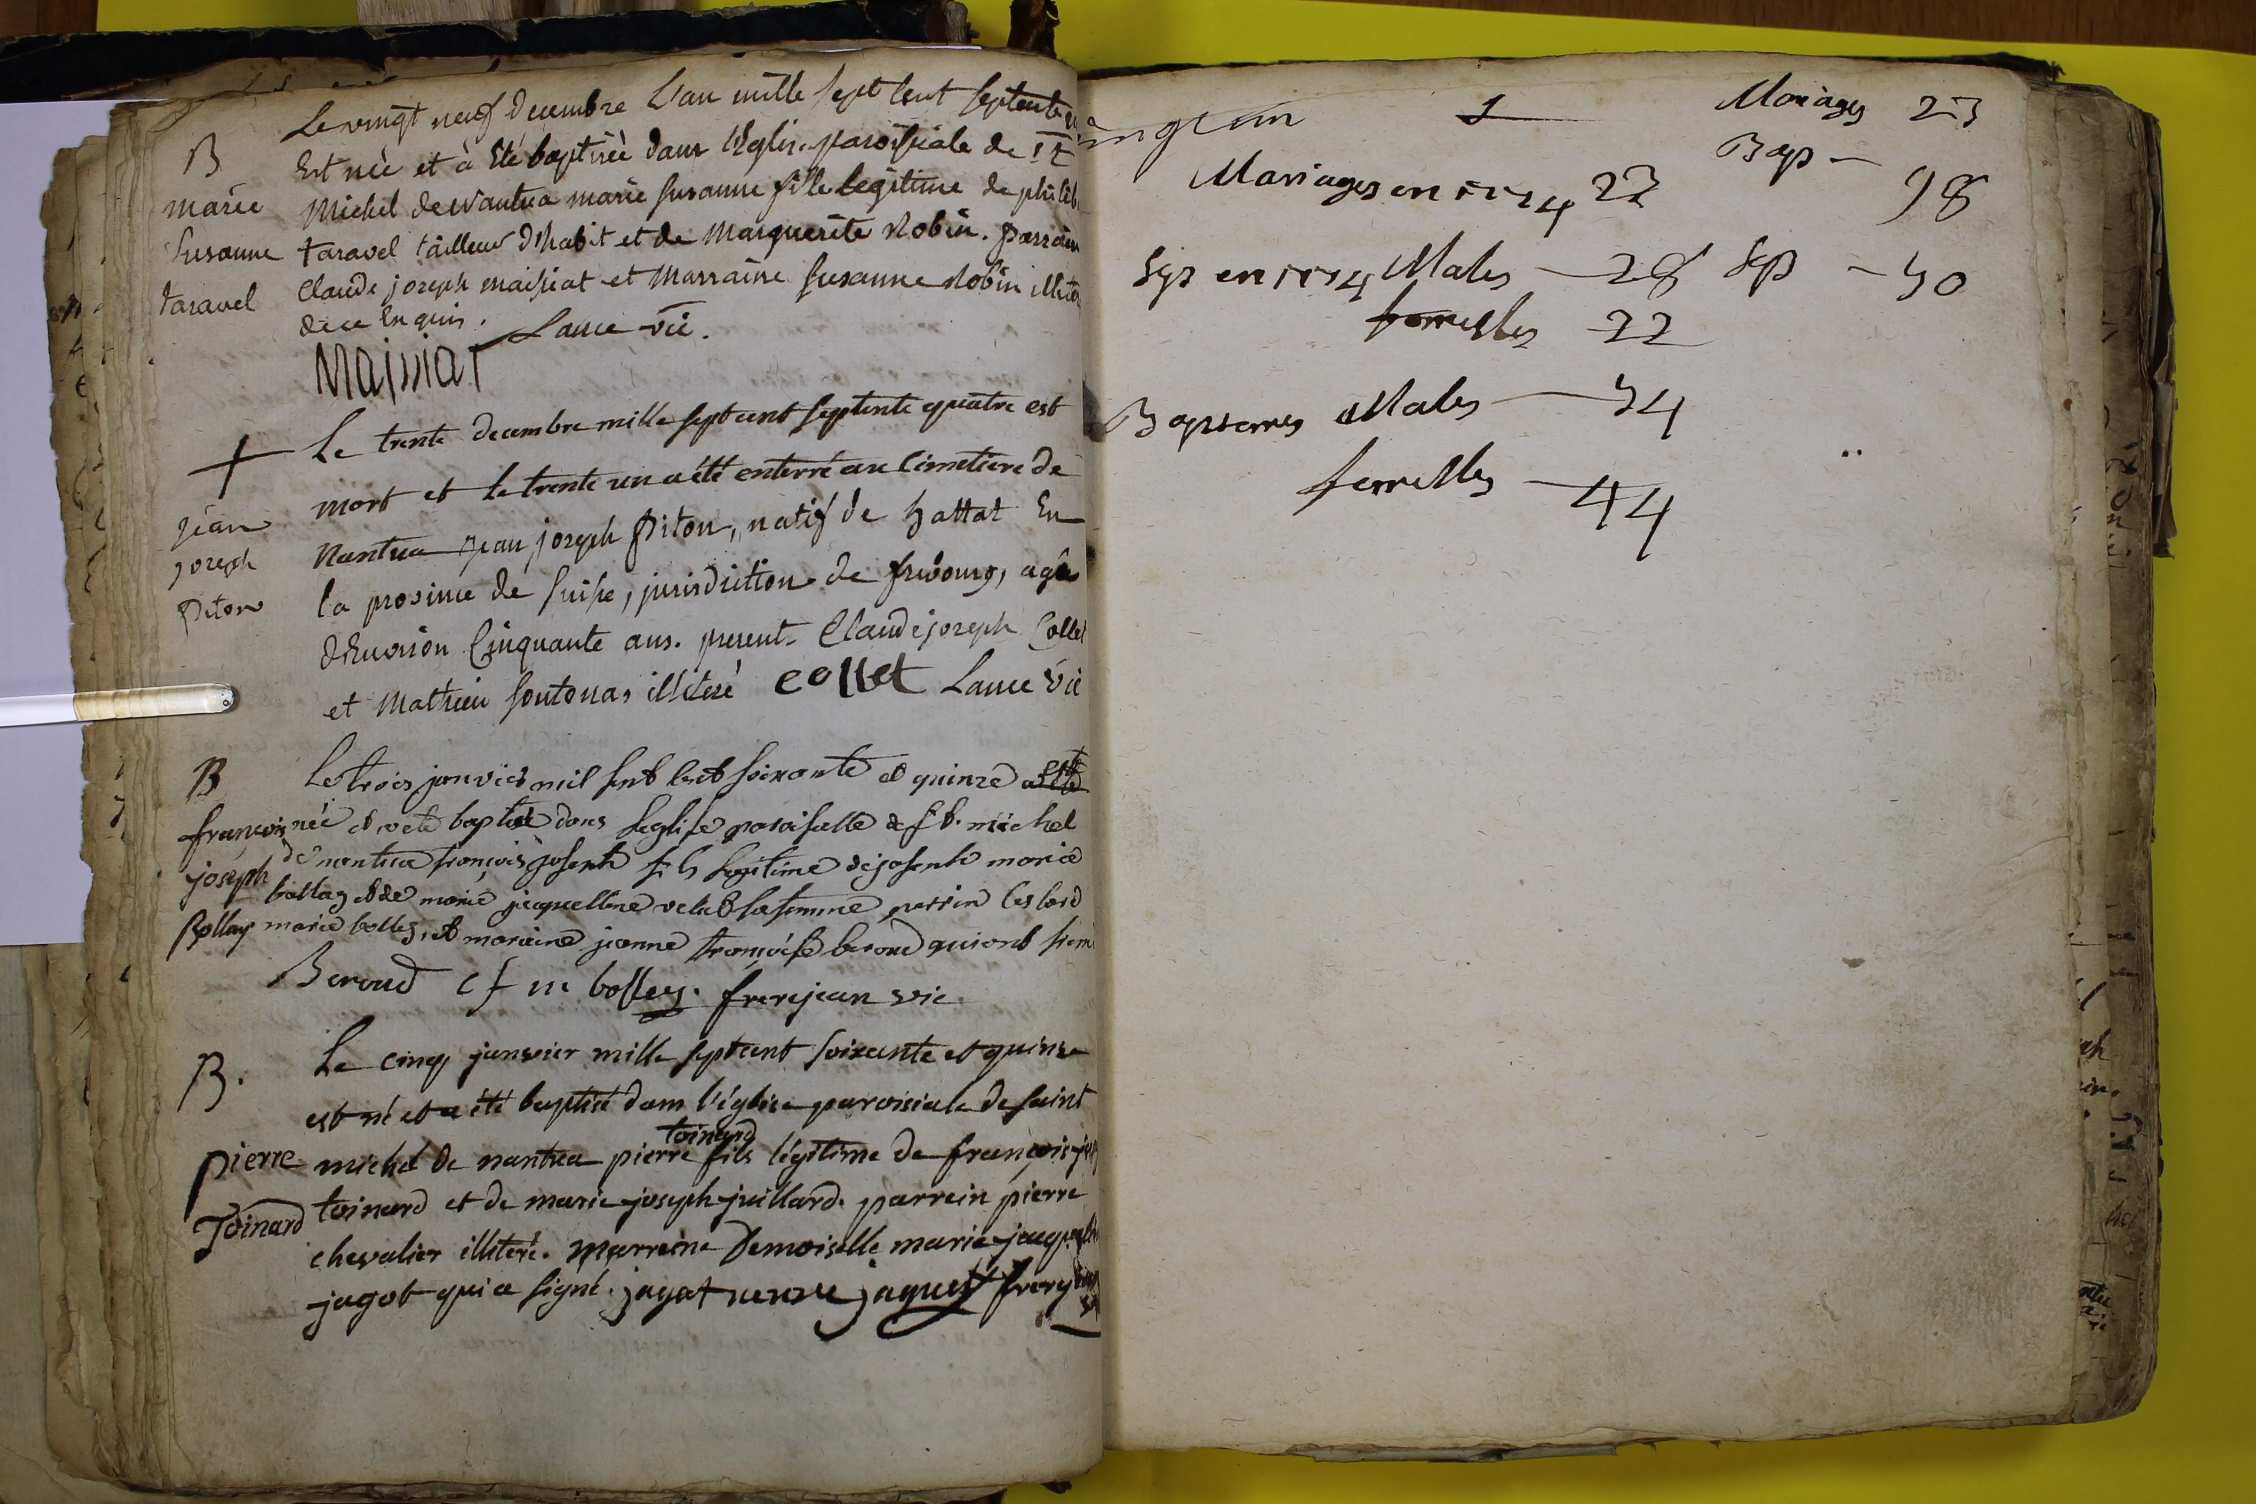 Le vingt neuf decembre l'an mille sept cent septente
B
Est née et à été baptisée dans l'Eglise paroissiale de St
marie
Michel de nantua marie susanne fille legitime de philib
Susanne
taravel tailleur d'habit et de Marguerite Robin. parrain
taravel
Claude joseph maissiat et Marraine susanne Robin
de ce Enquis. Lance vic.
Maissiat
+
Le trente decembre mille septcent septente quatre est
mort et le trente un a été enterré au Cimetiere de
jean
Nantua jean joseph Piton, natif de hattat En
joseph
la province de suisse, jurisdiction de fribourg, agé
Piton
d'Environ Cinquante ans. present. Claude joseph Collet
et Mathieu soutonas illiteré collet Lance vic
B
Le trois janvier mil sept cent soixante et quinze
françois
née et a ete baptisé dans leglise paroisselle de st. michel
joseph
de nantua françois joseph fils legitime de joseph marie
Bollay
bollay et de marie jacquelline sa femme parrin
marie bolley, et maraine jeanne françoise beroud qui ont
Beroud c f m bolley. frerejean vic
B.
Le cinq janvier mille septcent soixante et quinze
est né et a été baptisé dans l'église paroisiale de saint
toinard
pierre
michel de nantua pierre fils légitime de françois
Toinard
toinard et de marie joseph juillard. parrein pierre
chevalier illiteré. marreine Demoiselle marie
jagot qui a signé. jagot jaquet
1
Mariages 23
Bap — 98
Mariages en 1774 23
Sep en 1774 Males — 28 Sep — 50
femelles 22
Baptemes Males — 54
femelles — 44